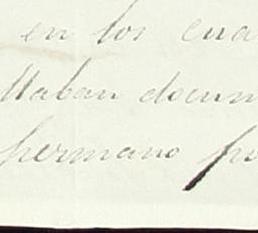 en los cua
llaban docum
hermano po